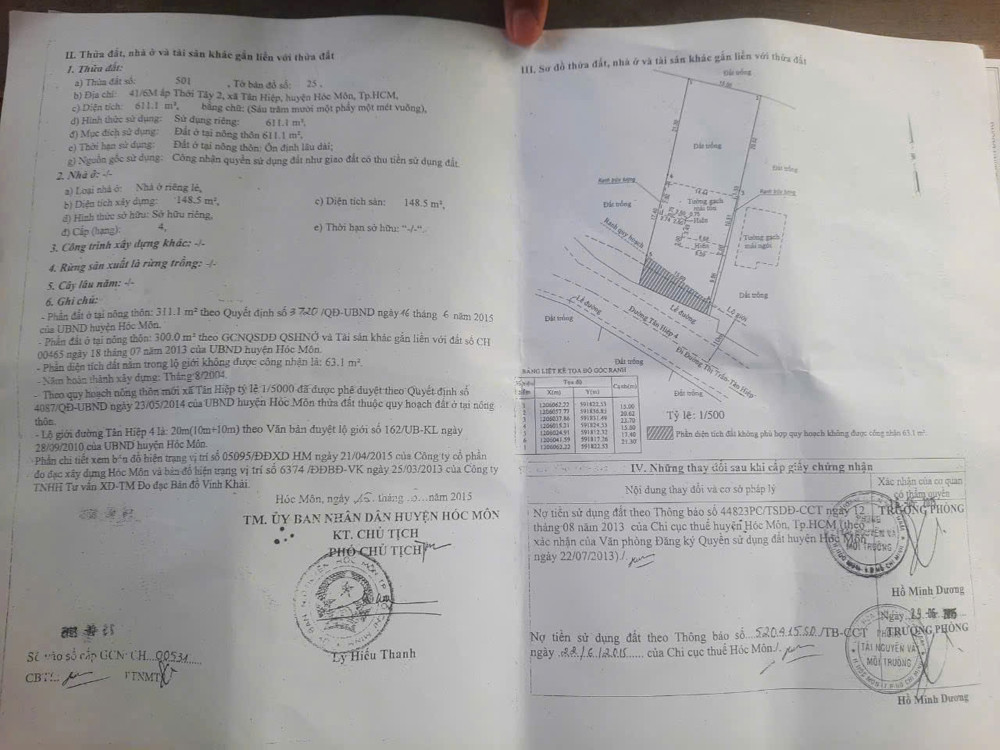 II. Thửa đất, nhà ở và tài sản khác gắn liền với thửa đất
1. Thửa đất:
a) Thửa đất số: 501 , Tờ bản đồ số: 25 .
b) Địa chỉ: 41/6M ấp Thới Tây 2, xã Tân Hiệp, huyện Hóc Môn, Tp.HCM,
c) Diện tích: 611.1 m², bằng chữ: (Sáu trăm mười một phẩy một mét vuông),
d) Hình thức sử dụng: Sử dụng riêng: 611.1 m²,
đ) Mục đích sử dụng: Đất ở tại nông thôn 611.1 m²,
e) Thời hạn sử dụng: Đất ở tại nông thôn: Ổn định lâu dài;
g) Nguồn gốc sử dụng: Công nhận quyền sử dụng đất như giao đất có thu tiền sử dụng đất.
2. Nhà ở: -/-
a) Loại nhà ở: Nhà ở riêng lẻ,
b) Diện tích xây dựng: 148.5 m², c) Diện tích sàn: 148.5 m²,
d) Hình thức sở hữu: Sở hữu riêng,
đ) Cấp (hạng): 4, e) Thời hạn sở hữu: "-/-".
3. Công trình xây dựng khác: -/-
4. Rừng sản xuất là rừng trồng: -/-
5. Cây lâu năm: -/-
6. Ghi chú:
- Phần đất ở tại nông thôn: 311.1 m² theo Quyết định số 3720/QĐ-UBND ngày 16 tháng 6 năm 2015
của UBND huyện Hóc Môn.
- Phần đất ở tại nông thôn: 300.0 m² theo GCNQSDĐ QSHNỞ và Tài sản khác gắn liền với đất số CH
00465 ngày 18 tháng 07 năm 2013 của UBND huyện Hóc Môn.
- Phần diện tích đất nằm trong lộ giới không được công nhận là: 63.1 m².
- Năm hoàn thành xây dựng: Tháng 8/2004.
- Theo quy hoạch nông thôn mới xã Tân Hiệp tỷ lệ 1/5000 đã được phê duyệt theo Quyết định số
4087/QĐ-UBND ngày 23/05/2014 của UBND huyện Hóc Môn thửa đất thuộc quy hoạch đất ở tại nông
thôn.
- Lộ giới đường Tân Hiệp 4 là: 20m(10m+10m) theo Văn bản duyệt lộ giới số 162/UB-KL ngày
28/09/2010 của UBND huyện Hóc Môn.
Phần chi tiết xem bản đồ hiện trạng vị trí số 05095/ĐĐXD HM ngày 21/04/2015 của Công ty cổ phần
đo đạc xây dựng Hóc Môn và bản đồ hiện trạng vị trí số 6374 /ĐĐBĐ-VK ngày 25/03/2013 của Công ty
TNHH Tư vấn XD-TM Đo đạc Bản đồ Vĩnh Khải.
Hóc Môn, ngày 15 tháng năm 2015
TM. ỦY BAN NHÂN DÂN HUYỆN HÓC MÔN
KT. CHỦ TỊCH
PHÓ CHỦ TỊCH
Lý Hiếu Thanh
Số vào sổ cấp GCN: CH 00531
III. Sơ đồ thửa đất, nhà ở và tài sản khác gắn liền với thửa đất
Đất trống
Đất trống
Ranh bốc trụng
Ranh bốc trụng
Đất trống
Tường gạch
mái tôn
Hiên
Hiên
Đất trống
Tường gạch
mái ngói
Ranh quy hoạch
Lộ giới
Lề đường
Lề đường
Đường Tân Hiệp 4
Đất trống
Đất trống
Đi Đường Thị Trấn-Tân Hiệp
BẢNG LIỆT KÊ TỌA ĐỘ GÓC RANH
Tọa độ
X(m) Y(m) Cạnh(m)
Tỷ lệ: 1/500
Phần diện tích đất không phù hợp quy hoạch không được công nhận 63.1 m².
IV. Những thay đổi sau khi cấp giấy chứng nhận
Nội dung thay đổi và cơ sở pháp lý
Xác nhận của cơ quan
có thẩm quyền
Nợ tiền sử dụng đất theo Thông báo số 44823PC/TSDĐ-CCT ngày 12
tháng 08 năm 2013 của Chi cục thuế huyện Hóc Môn, Tp.HCM (theo
xác nhận của Văn phòng Đăng ký Quyền sử dụng đất huyện Hóc Môn
ngày 22/07/2013)./.
TRƯỞNG PHÒNG
Hồ Minh Dương
Nợ tiền sử dụng đất theo Thông báo số 5209.15.50/TB-CCT
ngày 22/6/2015 của Chi cục thuế Hóc Môn./.
Ngày 29-06-2015
TRƯỞNG PHÒNG
PHÒNG
TÀI NGUYÊN VÀ
MÔI TRƯỜNG
Hồ Minh Dương